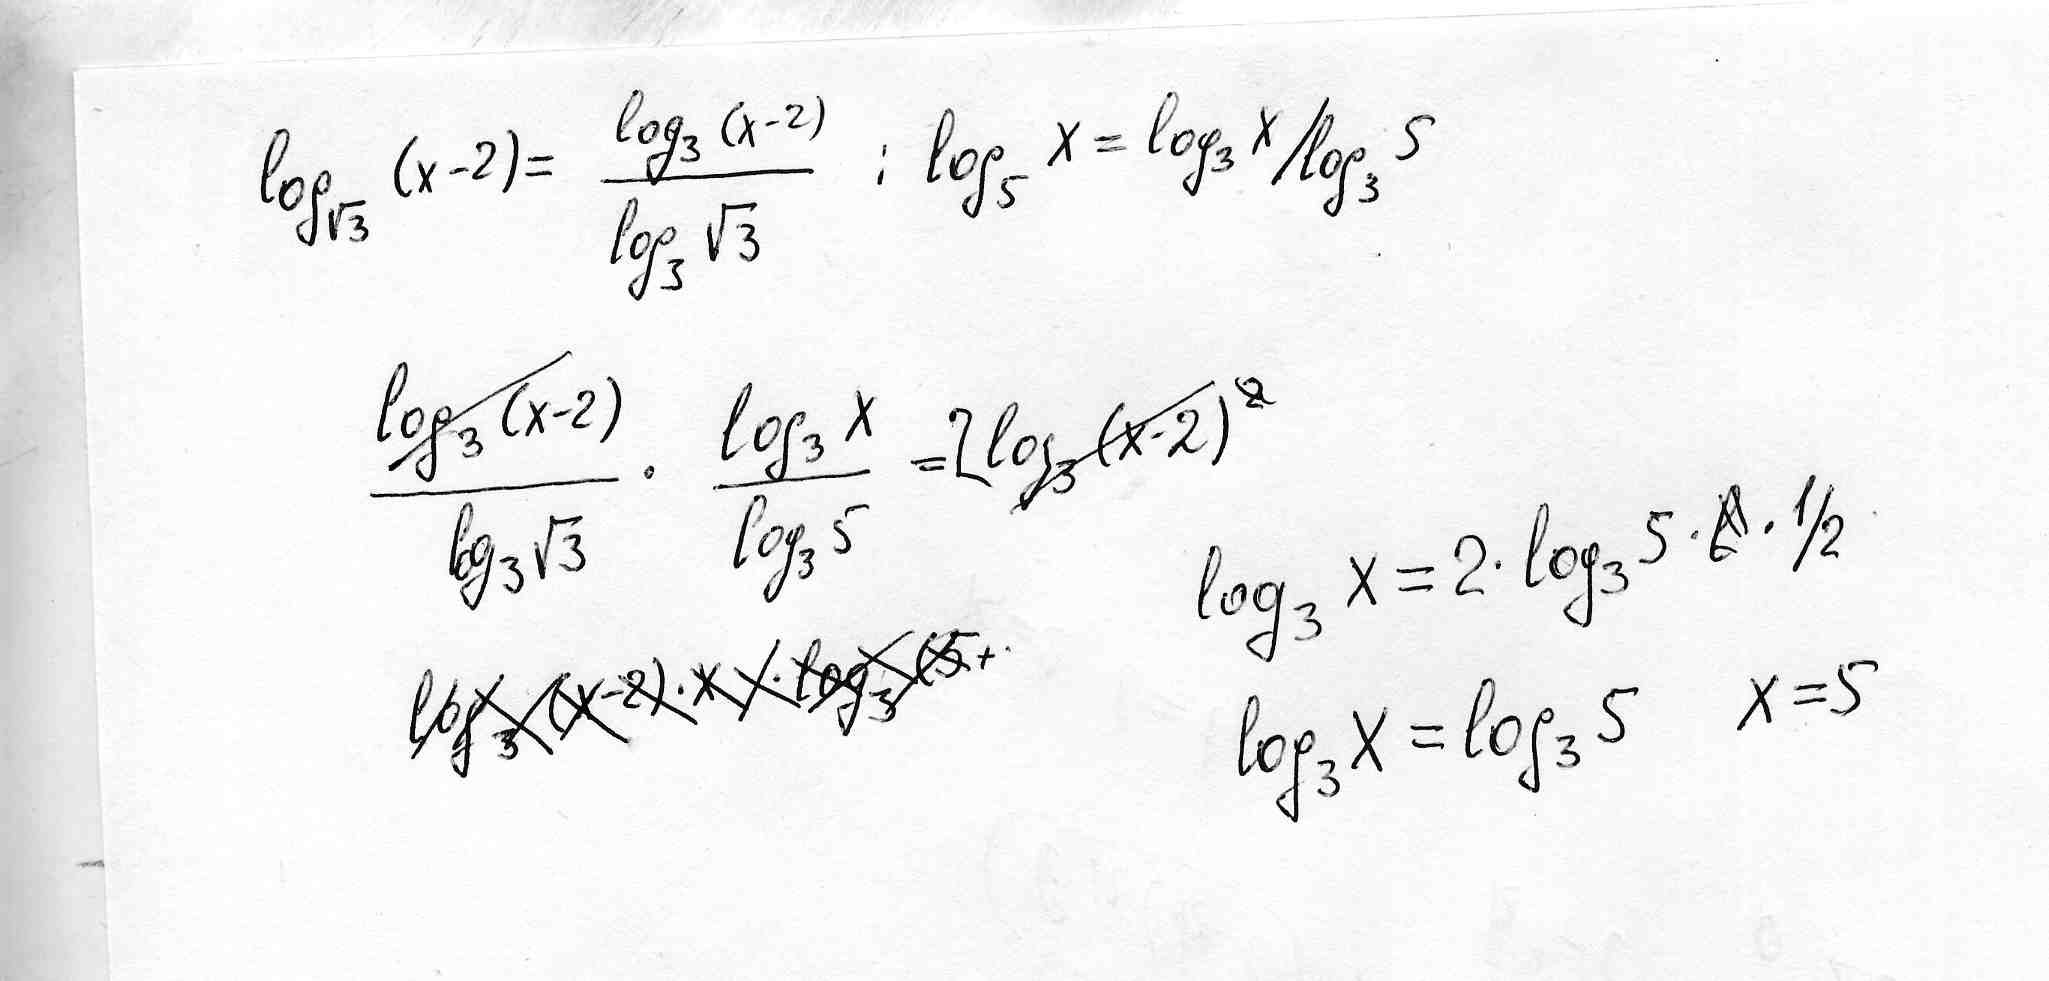 log_√3 (x-2) = log_3 (x-2) / log_3 √3 ; log_5 x = log_3 x / log_3 5
log_3 (x-2) / log_3 √3 · log_3 x / log_3 5 = 2 log_3 (x-2)
log_3 x = 2 · log_3 5 · 1/2
log_3 (x-2) · x · log_3 (5 +
log_3 x = log_3 5 x = 5